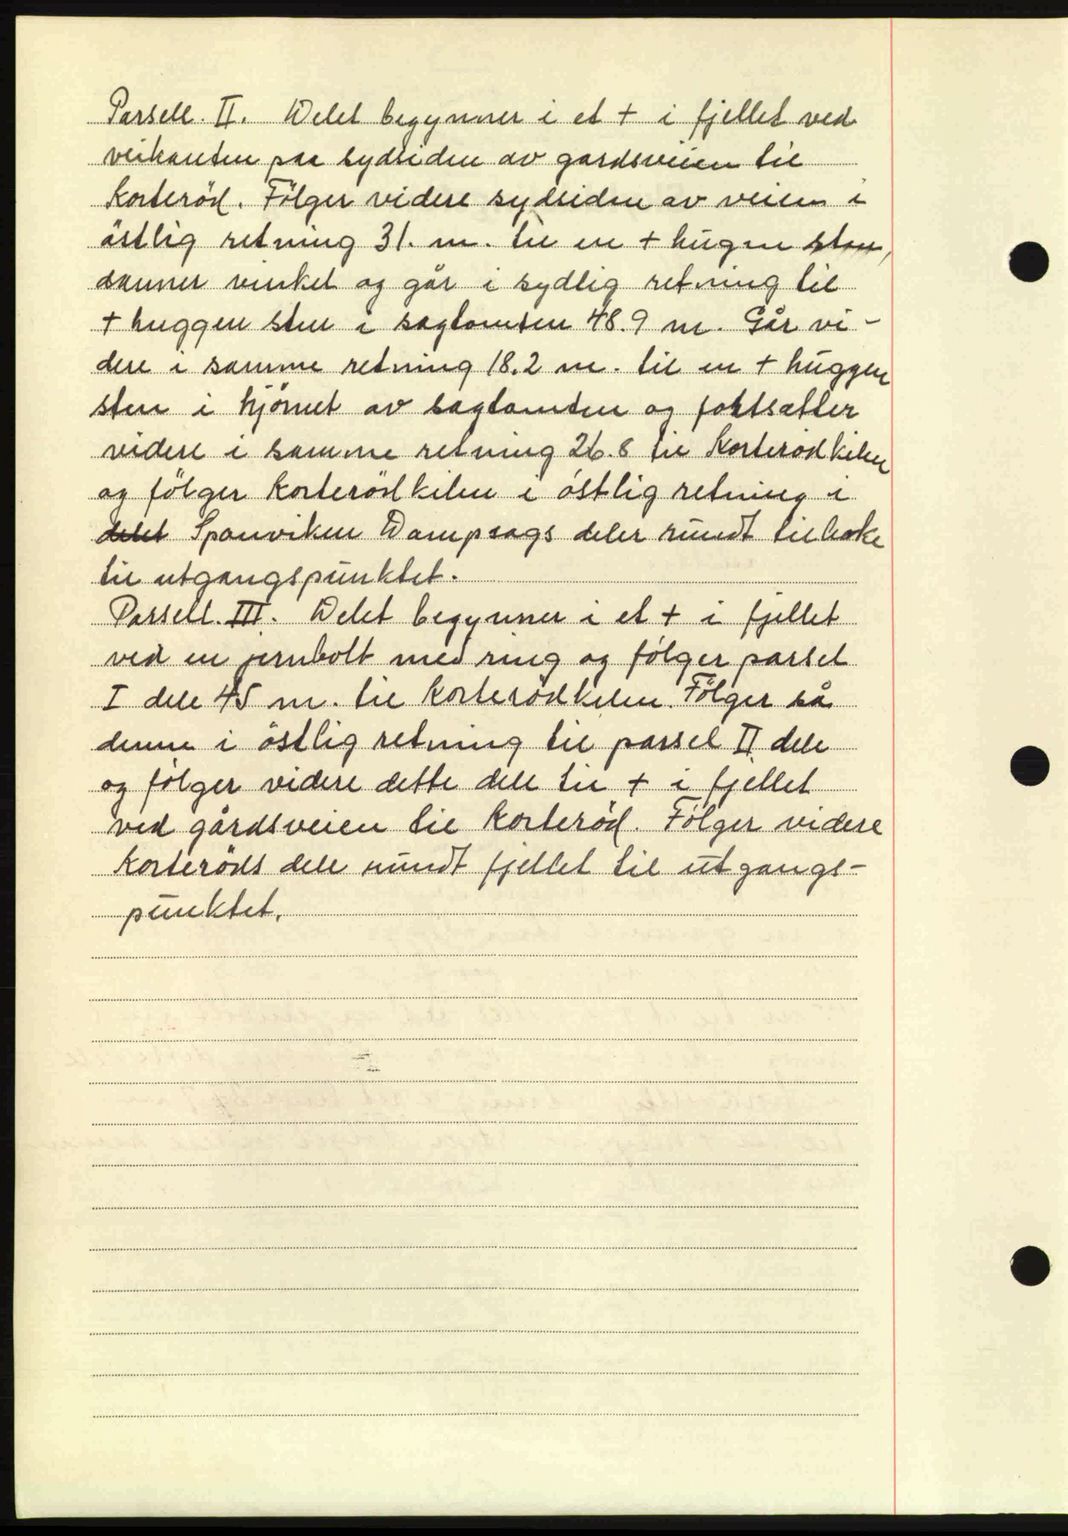 Parsell. II. Delet begynner i et + i fjellet ved
veikanten paa sydsiden av gardsveiien til
Korteröd. Fölger videre sydsiden av veien i
östlig retning 31. m. til en + hugen sten,
danner vinkel og går i sydlig retning til
+ huggen sten i sagtomten 48.9 m. Går vi-
dere i samme retning 18.2 m. til en + huggen
sten i hjörnet av sagtomten og fortsætter
videre i samme retning 26.8 til Korterödkilen
og fölger Korterödkilen i östlig retning i
delet Sponviken Dampsags deler rundt tilbake
til utgangspunktet.
Parsell. III. Delet begynner i et + i fjellet
ved en jernbolt med ring og fölger parsel
I dele 45 m. til Korterödkilen. Fölger så
denne i östlig retning til parsel II dele
og fölger videre dette dele til + i fjellet
ved gårdsveien til Korteröd. Fölger videre
Korteröds dele rundt fjellet til utgangs-
punktet.